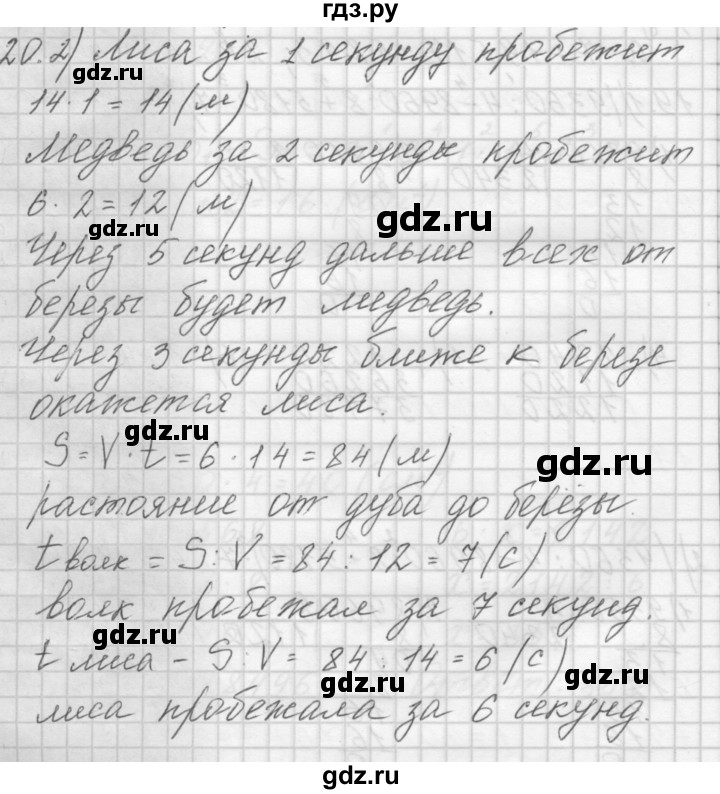 гдз.ру
20.2) Лиса за 1 секунду пробежит
gdz.ru
14·1=14(м)
Медведь за 2 секунды пробежит
6·2=12(м)
gdz.ru
gdz.ru
Через 5 секунд дальше всех от
березы будет медведь.
Через 3 секунды ближе к березе
окажется лиса.
gdz.ru
S=V·t=6·14=84(м)
gdz.ru
растояние от дуба до берёзы.
t волк = S:V=84:12=7(с)
волк пробежал за 7 секунд.
gdz.ru
t лиса - S:V= 84:14=6(с)
gdz.ru
gdz.ru
лиса пробежала за 6 секунд.
gdz.ru